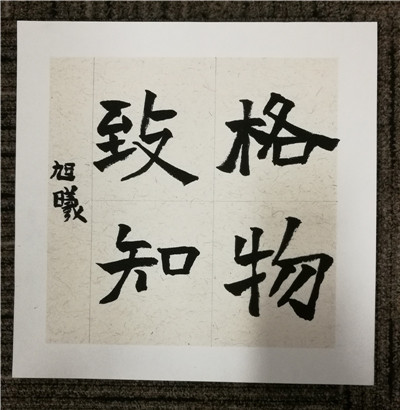 格物
致知
旭曦